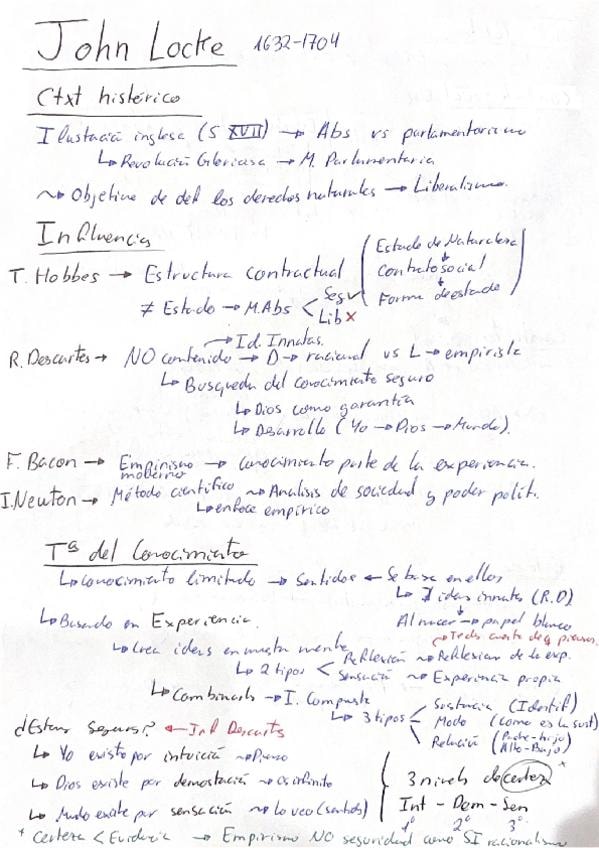 John Locke 1632-1704
Ctxt histérico
Ilustración inglesa (S XVII) → Abs vs parlamentarismo
↳ Revolución Gloriosa → M. Parlamentaria
~> Objetivo de def los derechos naturales → Liberalismo.
Influencias
T. Hobbes → Estructura contractual ( Estado de Naturaleza ↓ Contrato social ↓ Forma de estado )
≠ Estado → M.Abs < Seg ✓ Lib x
→ Id. Innatas.
R. Descartes → NO contenido → D → racional vs L → empirista
↳ Busqueda del conocimiento seguro
↳ Dios como garantía
↳ Desarrollo (Yo → Dios → Mundo).
F. Bacon → Empirismo moderno → Conocimiento parte de la experiencia.
I. Newton → Método científico ~> Analisis de sociedad y poder polit.
↳ enfoce empírico
Tª del Conocimiento
↳ Conocimiento limitado → Sentidos ← Se basa en ellos
↳ ∄ ideas innatas (R.D)
↳ Basado en Experiencia. Al nacer → papel blanco
↳ Crea ideas en nuestra mente
↳ 2 tipos < Reflexión ~> Reflexion de la exp.
Sensación ~> Experiencia propia
↳ Combinarls → I. Compuesta
↳ 3 tipos Sustancia (Identif)
Modo (como es la sust)
Relación (Padre-hijo) (Alto-Bajo)
¿Estamos seguros? ← Inf Descartes
↳ Yo existo por intuición ~> Pienso
↳ Dios existe por demostración ~> es infinito
↳ Mundo existe por sensación ~> lo veo (sentidos)
3 niveles de certeza *
Int - Dem - Sen
1º 2º 3º
* Certeza < Evidencia → Empirismo NO seguridad como SI racionalismo